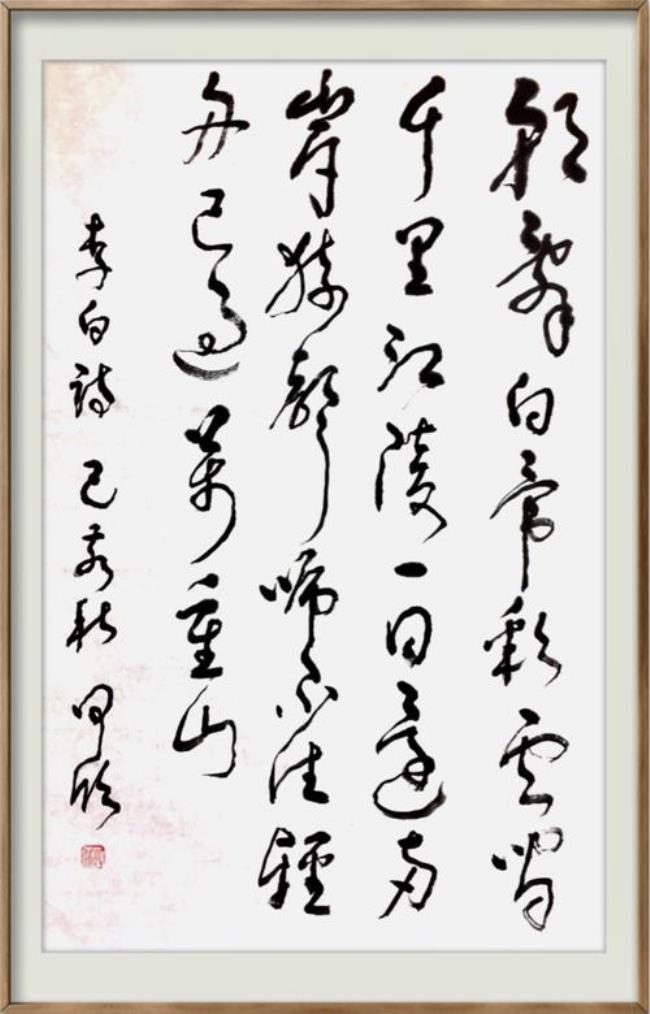 朝辭白帝彩雲間
千里江陵一日還兩
岸猿聲啼不住輕
舟已過萬重山
李白詩 己亥秋